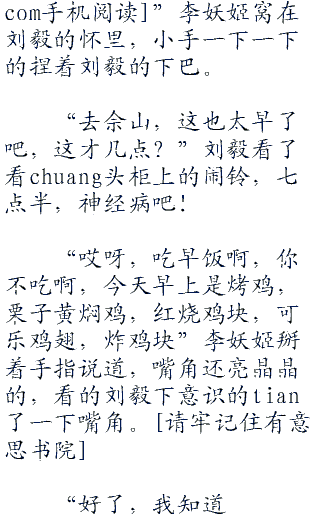 com手机阅读]”李妖姬窝在
刘毅的怀里，小手一下一下
的捏着刘毅的下巴。
“去佘山，这也太早了
吧，这才几点？”刘毅看了
看chuang头柜上的闹铃，七
点半，神经病吧！
“哎呀，吃早饭啊，你
不吃啊，今天早上是烤鸡，
栗子黄焖鸡，红烧鸡块，可
乐鸡翅，炸鸡块”李妖姬掰
着手指说道，嘴角还亮晶晶
的，看的刘毅下意识的tian
了一下嘴角。[请牢记住有意
思书院]
“好了，我知道